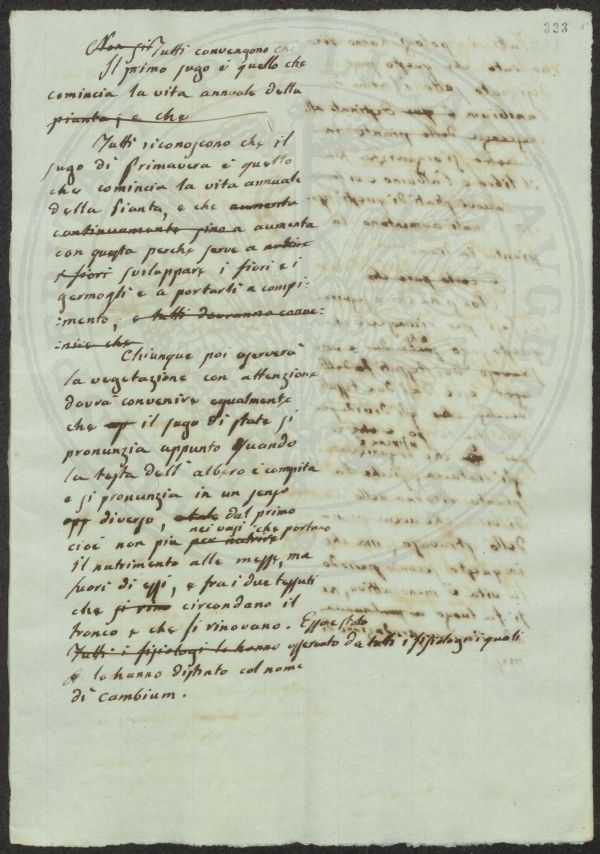 323
Non si Tutti convengono che
Il primo sugo è quello che
comincia la vita annuale della
pianta; e che
Tutti riconoscono che il
sugo di Primavera è quello
che comincia la vita annuale
della Pianta, e che aumenta
continuamente fino a aumenta
con questa perche serve a nutrire
i fiori sviluppare i fiori e i
germogli e a portarli a compi:
:mento, e tutti dovranno conve:
:nire che
Chiunque poi osserverà
la vegetazione con attenzione
dovrà convenire egualmente
che il sugo di state si
pronunzia appunto quando
la testa dell'albero è compita
e si pronunzia in un senso
opp diverso, e tale dal primo
nei vasi che portano
cioè non più per nutrire
il nutrimento alle messe, ma
fuori di essi, e fra i due tessuti
che si rino circondano il
tronco e che si rinovano. Esso è stato
Tutti i fisiologi lo hanno osservato da tutti i fisiologi i quali
lo hanno distinto col nome
di Cambium.